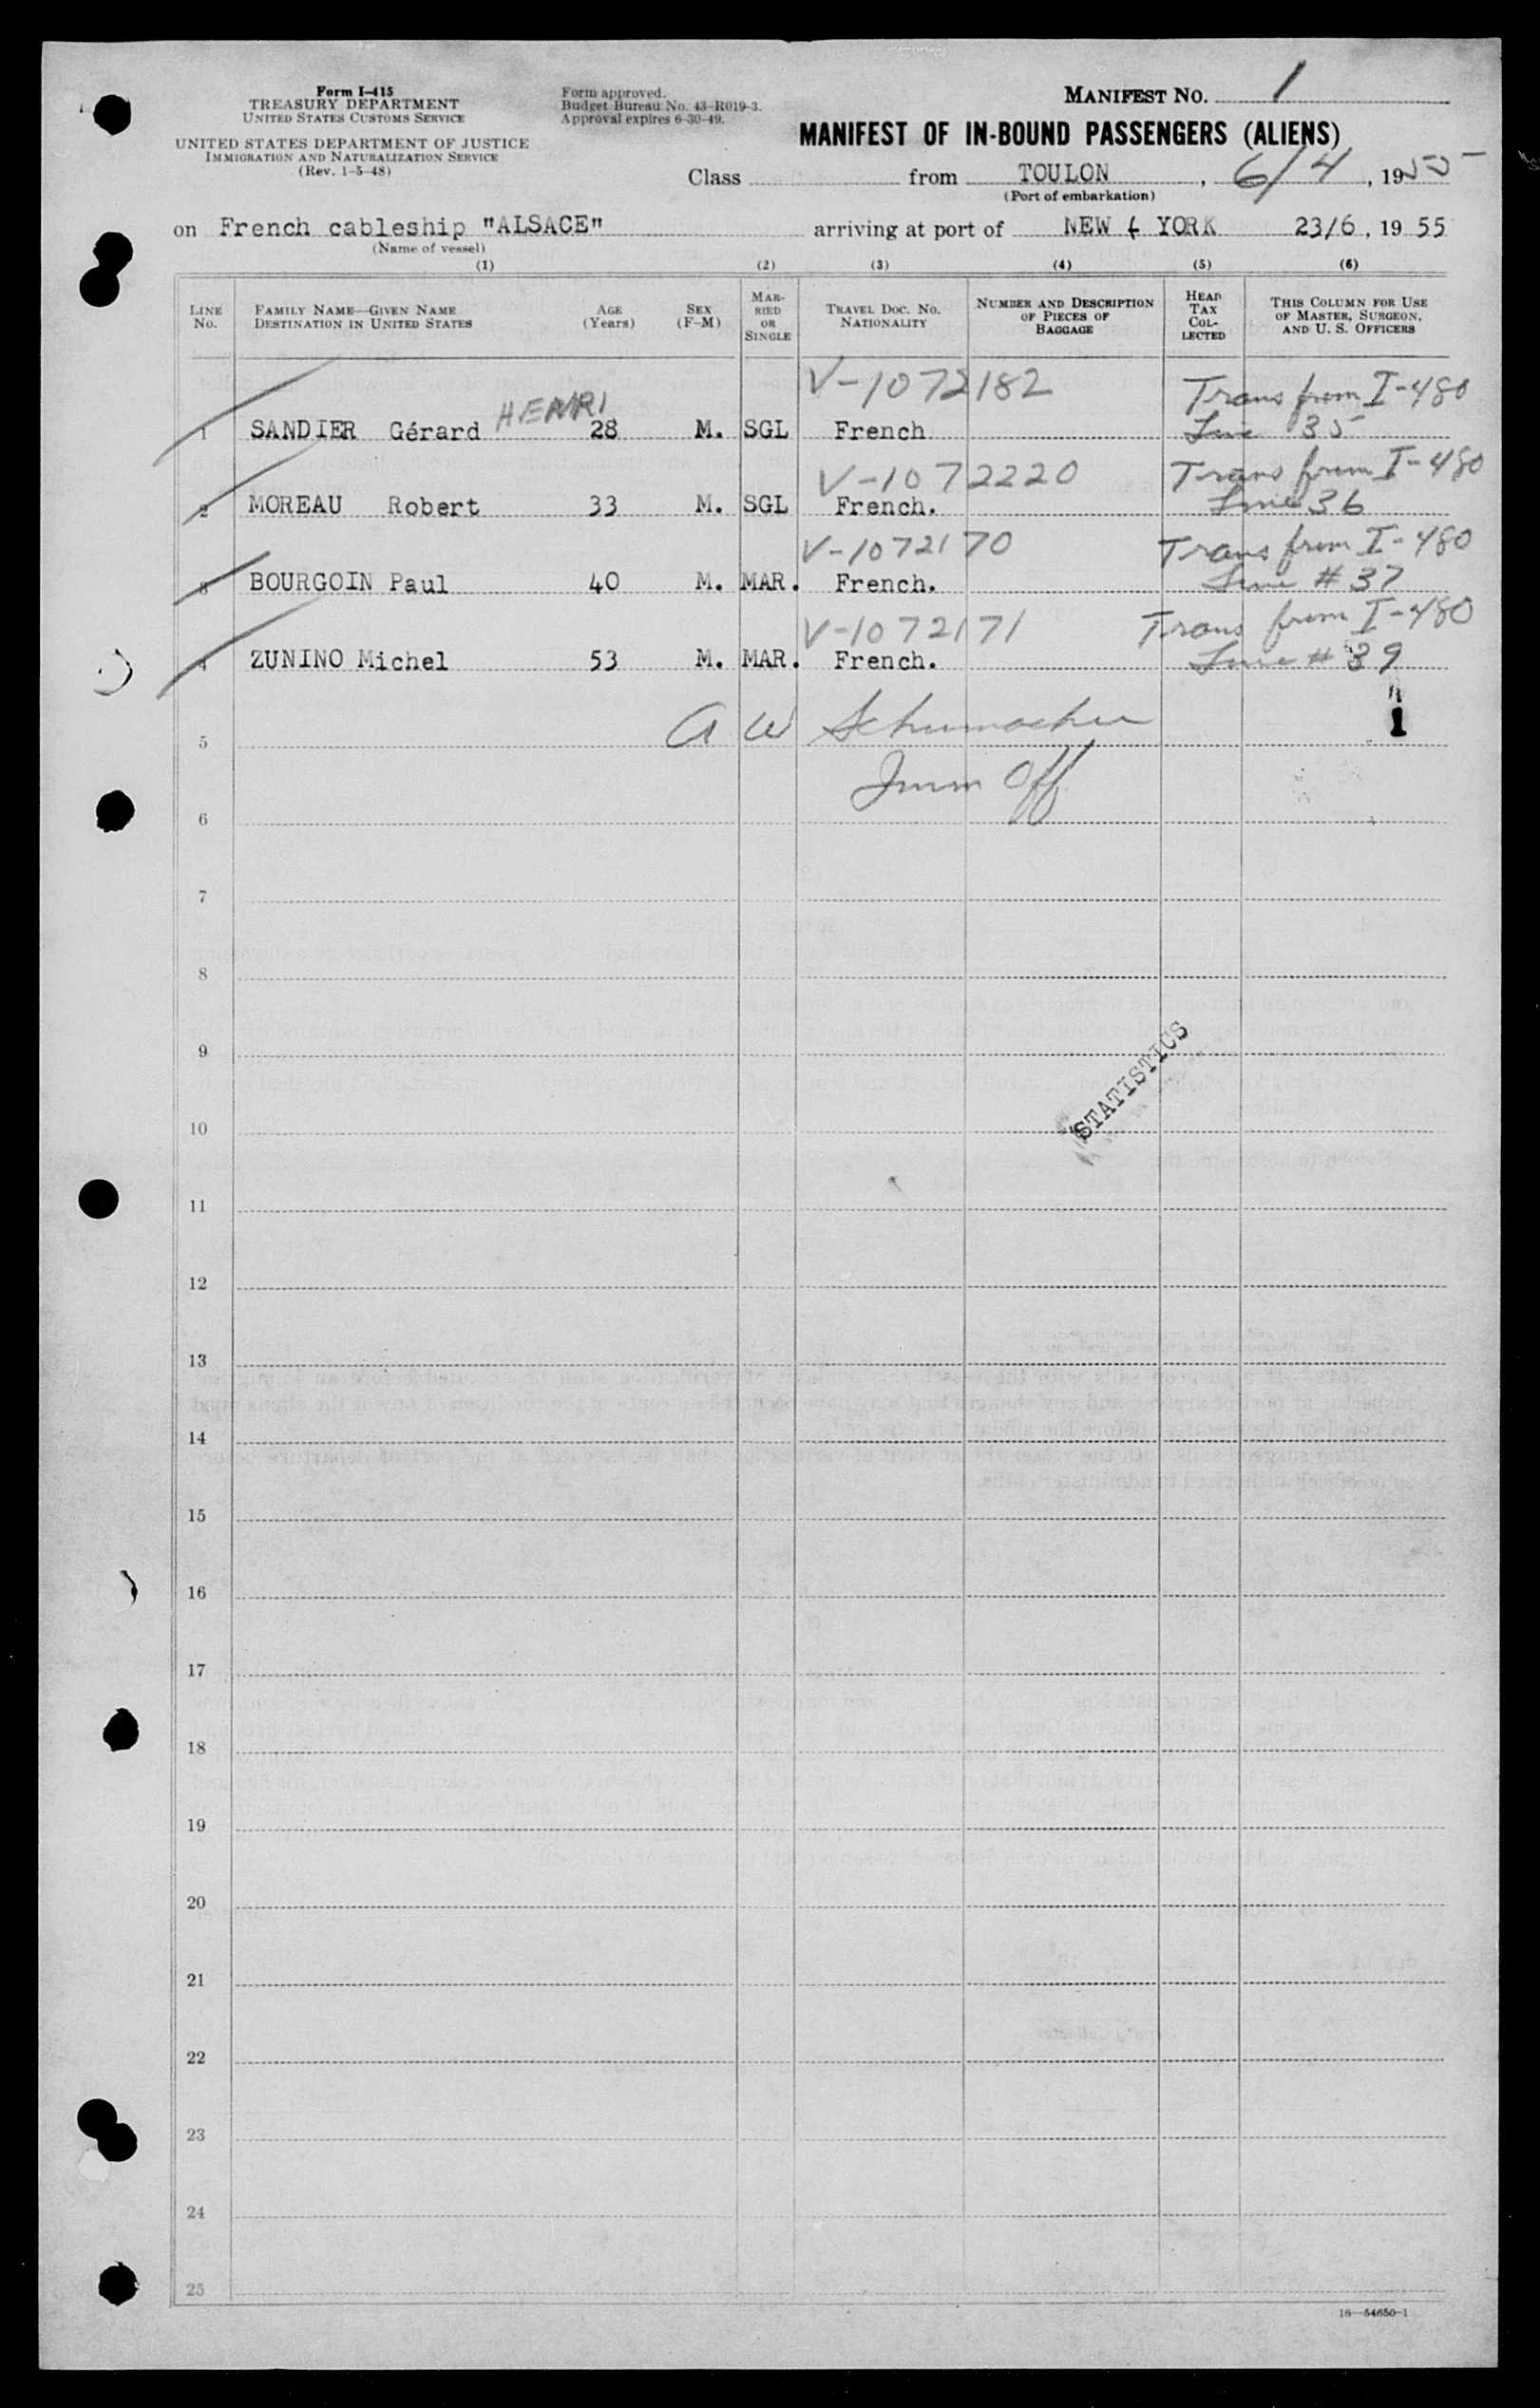 Form I-415
TREASURY DEPARTMENT
UNITED STATES CUSTOMS SERVICE
UNITED STATES DEPARTMENT OF JUSTICE
IMMIGRATION AND NATURALIZATION SERVICE
(Rev. 1-5-48)
Form approved.
Budget Bureau No. 43-R019-3.
Approval expires 6-30-49.
MANIFEST NO. 1
MANIFEST OF IN-BOUND PASSENGERS (ALIENS)
Class from TOULON, 6/4, 1955
(Port of embarkation)
on French cableship "ALSACE" arriving at port of NEW YORK 23/6, 19 55
(Name of vessel)
(1) (2) (3) (4) (5) (6)
LINE No. FAMILY NAME—GIVEN NAME DESTINATION IN UNITED STATES AGE (Years) SEX (F-M) MARRIED OR SINGLE TRAVEL DOC. NO. NATIONALITY NUMBER AND DESCRIPTION OF PIECES OF BAGGAGE HEAD TAX COLLECTED THIS COLUMN FOR USE OF MASTER, SURGEON, AND U. S. OFFICERS
V-1072182 Trans from I-480
1 SANDIER Gérard HENRI 28 M. SGL French Line 35
V-1072220 Trans from I-480
2 MOREAU Robert 33 M. SGL French. Line 36
V-1072170 Trans from I-480
3 BOURGOIN Paul 40 M. MAR. French. Line # 37
V-1072171 Trans from I-480
4 ZUNINO Michel 53 M. MAR. French. Line # 39
1
5 A W Schumacher
Imm Off
6
7
8
9
STATISTICS
10
11
12
13
14
15
16
17
18
19
20
21
22
23
24
25
16—54650-1